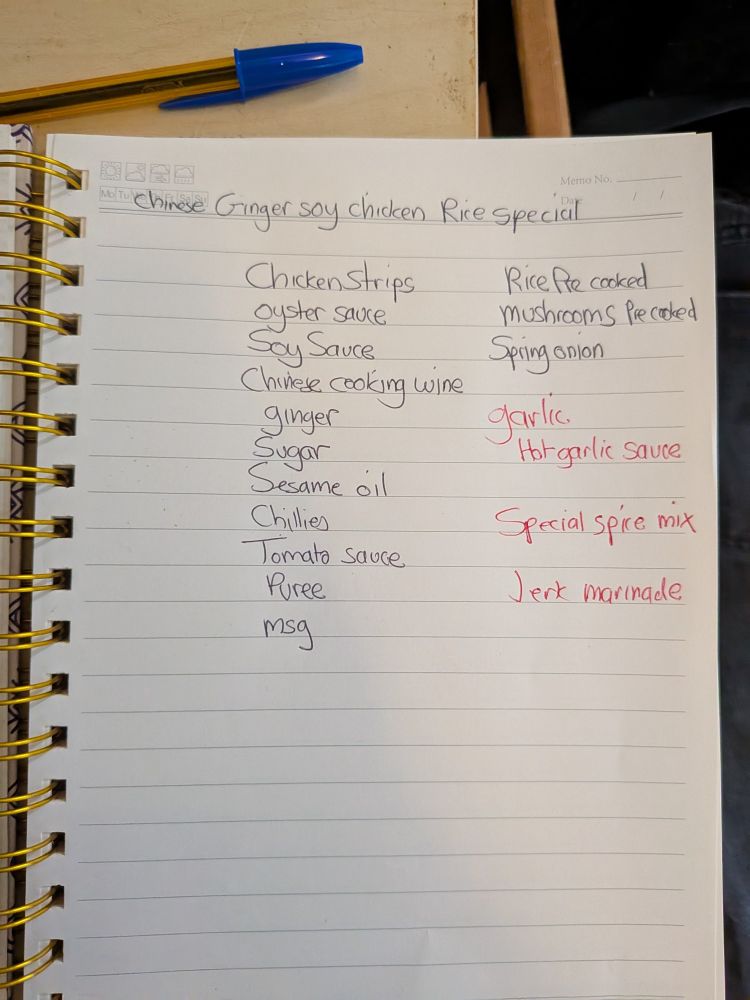 Memo No.
Mo Tu
Date / /
Chinese Ginger soy chicken Rice special
Chicken Strips
oyster sauce
Soy Sauce
Chinese cooking wine
ginger
Sugar
Sesame oil
Chillies
Tomato sauce
Puree
msg
Rice Pre cooked
mushrooms Pre cooked
Spring onion
garlic.
Hot garlic sauce
Special spice mix
Jerk marinade